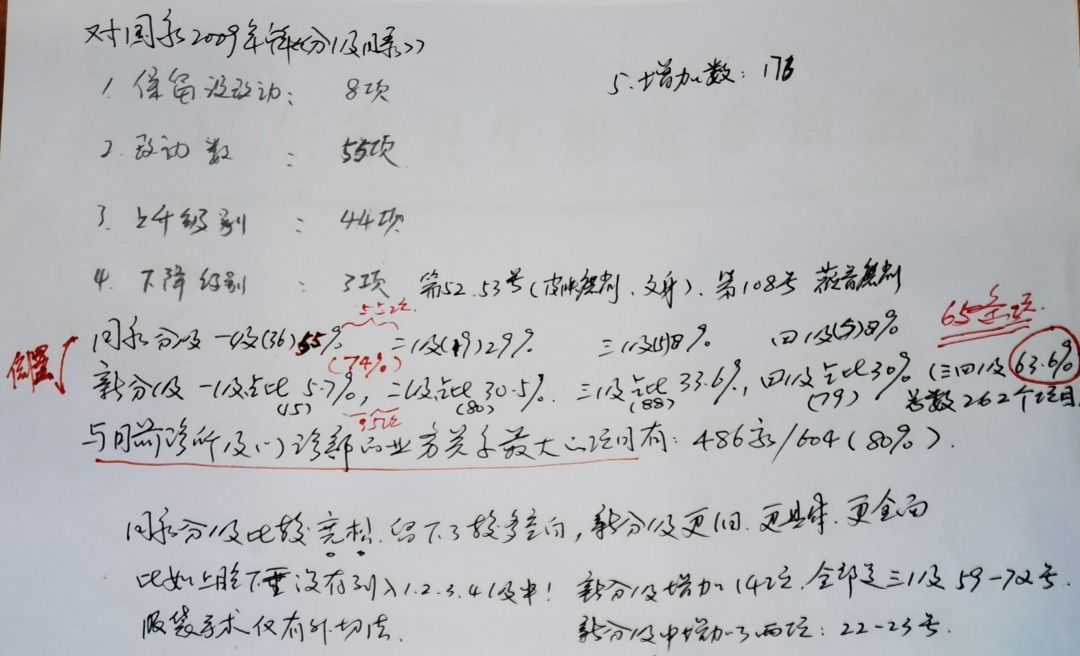 对国家2009年《分级目录》
1. 保留没改动： 8项
5. 增加数：176
2. 改动数 ： 55项
3. 上升级别 ： 44项
4. 下降级别 ： 3项 第52.53号(皮肤磨削、文身)、第108号
55项
65条项
国家分级 一级(36)55% 二级(19)29% 三级(5)8% 四级(5)8%
(74%)
倒置
新分级 一级占比5.7%，二级占比30.5%. 三级占比33.6%，四级占比30% (三四级63.6%
(15) (80) (88) (79) 总数262个项目
95项
与目前诊所及门诊部的业务关系最大的项目有：486家/604(80%).
国家分级比较宽松.留下了较多空白，新分级更细.更具体.更全面
比如上睑下垂没有列入1.2.3.4级中！ 新分级增加14项.全部是三级59-72号.
眼袋手术仅有外切法. 新分级中增加了两项：22-23号.